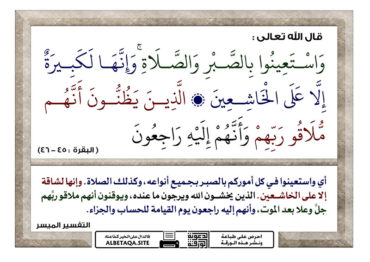 قال الله تعالى :
وَاسْتَعِينُوا بِالصَّبْرِ وَالصَّلَاةِ ۚ وَإِنَّهَا لَكَبِيرَةٌ
إِلَّا عَلَى الْخَاشِعِينَ ۞ الَّذِينَ يَظُنُّونَ أَنَّهُم
مُّلَاقُو رَبِّهِمْ وَأَنَّهُمْ إِلَيْهِ رَاجِعُونَ
( البقرة : ٤٥ - ٤٦ )
أي واستعينوا في كل أموركم بالصبر بجميع أنواعه ، وكذلك الصلاة . وإنها لشاقة
إلا على الخاشعين . الذين يخشون الله ويرجون ما عنده ، ويوقنون أنهم ملاقو ربِّهم
جلَّ وعلا بعد الموت ، وأنهم إليه راجعون يوم القيامة للحساب والجزاء .
التفسير الميسر
احرص على طباعة
ونشر هذه الورقة
فالدال على الخير كفاعله
ALBETAQA.SITE